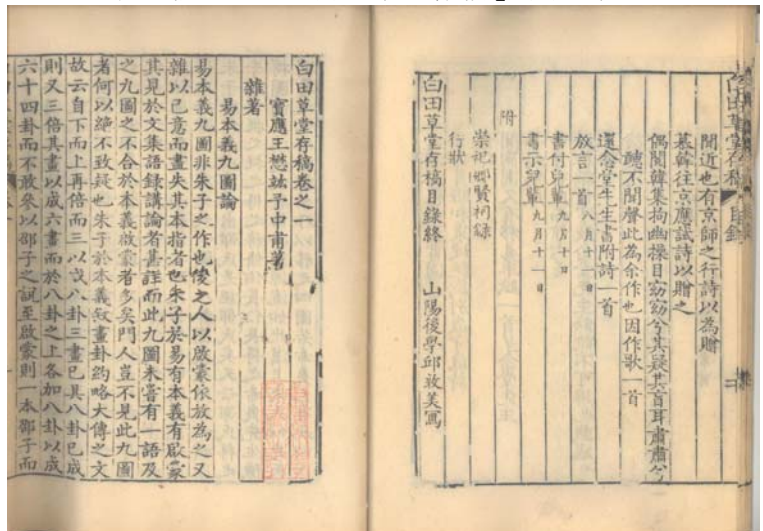 白田草堂存稿 目錄
聞近也有京師之行詩以為贈
慕韓往京應試詩以贈之
偶閱韓集拘幽操目窈窈兮其疑其盲耳肅肅兮
聽不聞聲此為余作也因作歌一首
還念堂先生書附詩一首
放言一首 八月十一日
書付兒輩 九月十日
書示兒輩 九月十一日
附
崇祀鄉賢祠錄
行狀
白田草堂存稿目錄終 山陽後學邱敬美寫
白田草堂存稿卷之一
寶應王懋竑予中甫著
雜著
易本義九圖論
易本義九圖非朱子之作也後之人以啟蒙依放為之又
雜以己意而盡失其本指者也朱子於易有本義有啟蒙
其見於文集語錄講論者甚詳而此九圖未嘗有一語及
之九圖之不合於本義啟蒙者多矣門人豈不見此九圖
者何以絕不致疑也朱子於本義敘畫卦約略大傳之文
故云自下而上再倍而三以成八卦三畫已具八卦已成
則又三倍其畫以成六畫而於八卦之上各加八卦以成
六十四卦而不敢參以邵子之說至啟蒙則一本邵子而